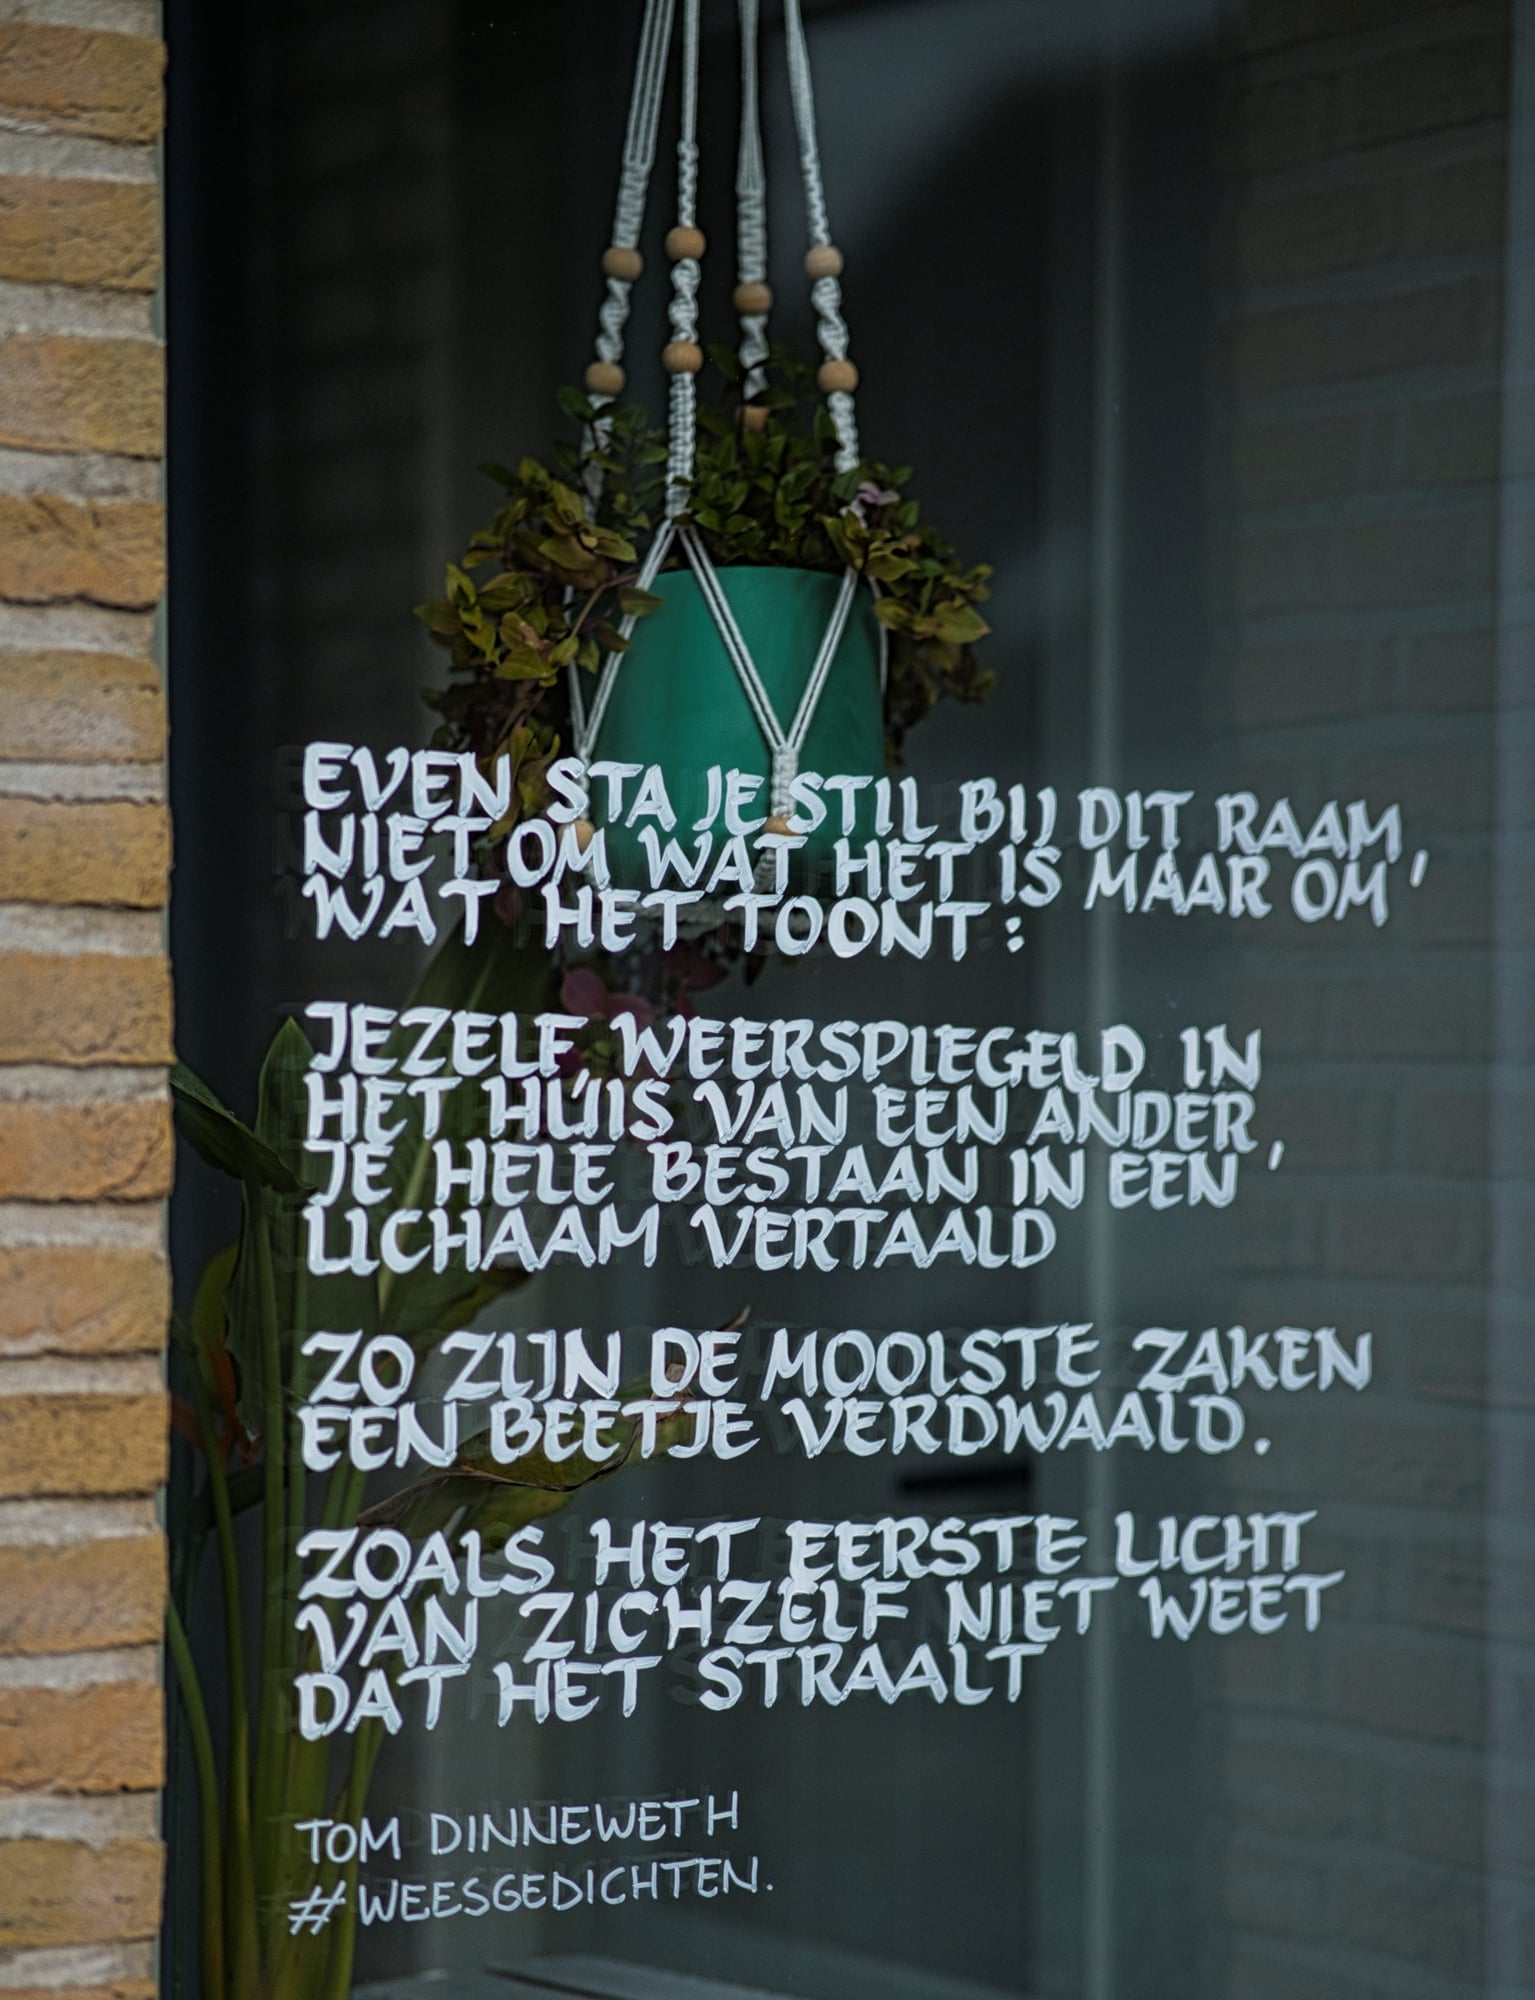 EVEN STA JE STIL BIJ DIT RAAM,
NIET OM WAT HET IS MAAR OM
WAT HET TOONT:
JEZELF WEERSPIEGELD IN
HET HUIS VAN EEN ANDER,
JE HELE BESTAAN IN EEN
LICHAAM VERTAALD
ZO ZIJN DE MOOISTE ZAKEN
EEN BEETJE VERDWAALD.
ZOALS HET EERSTE LICHT
VAN ZICHZELF NIET WEET
DAT HET STRAALT
TOM DINNEWETH
#WEESGEDICHTEN.